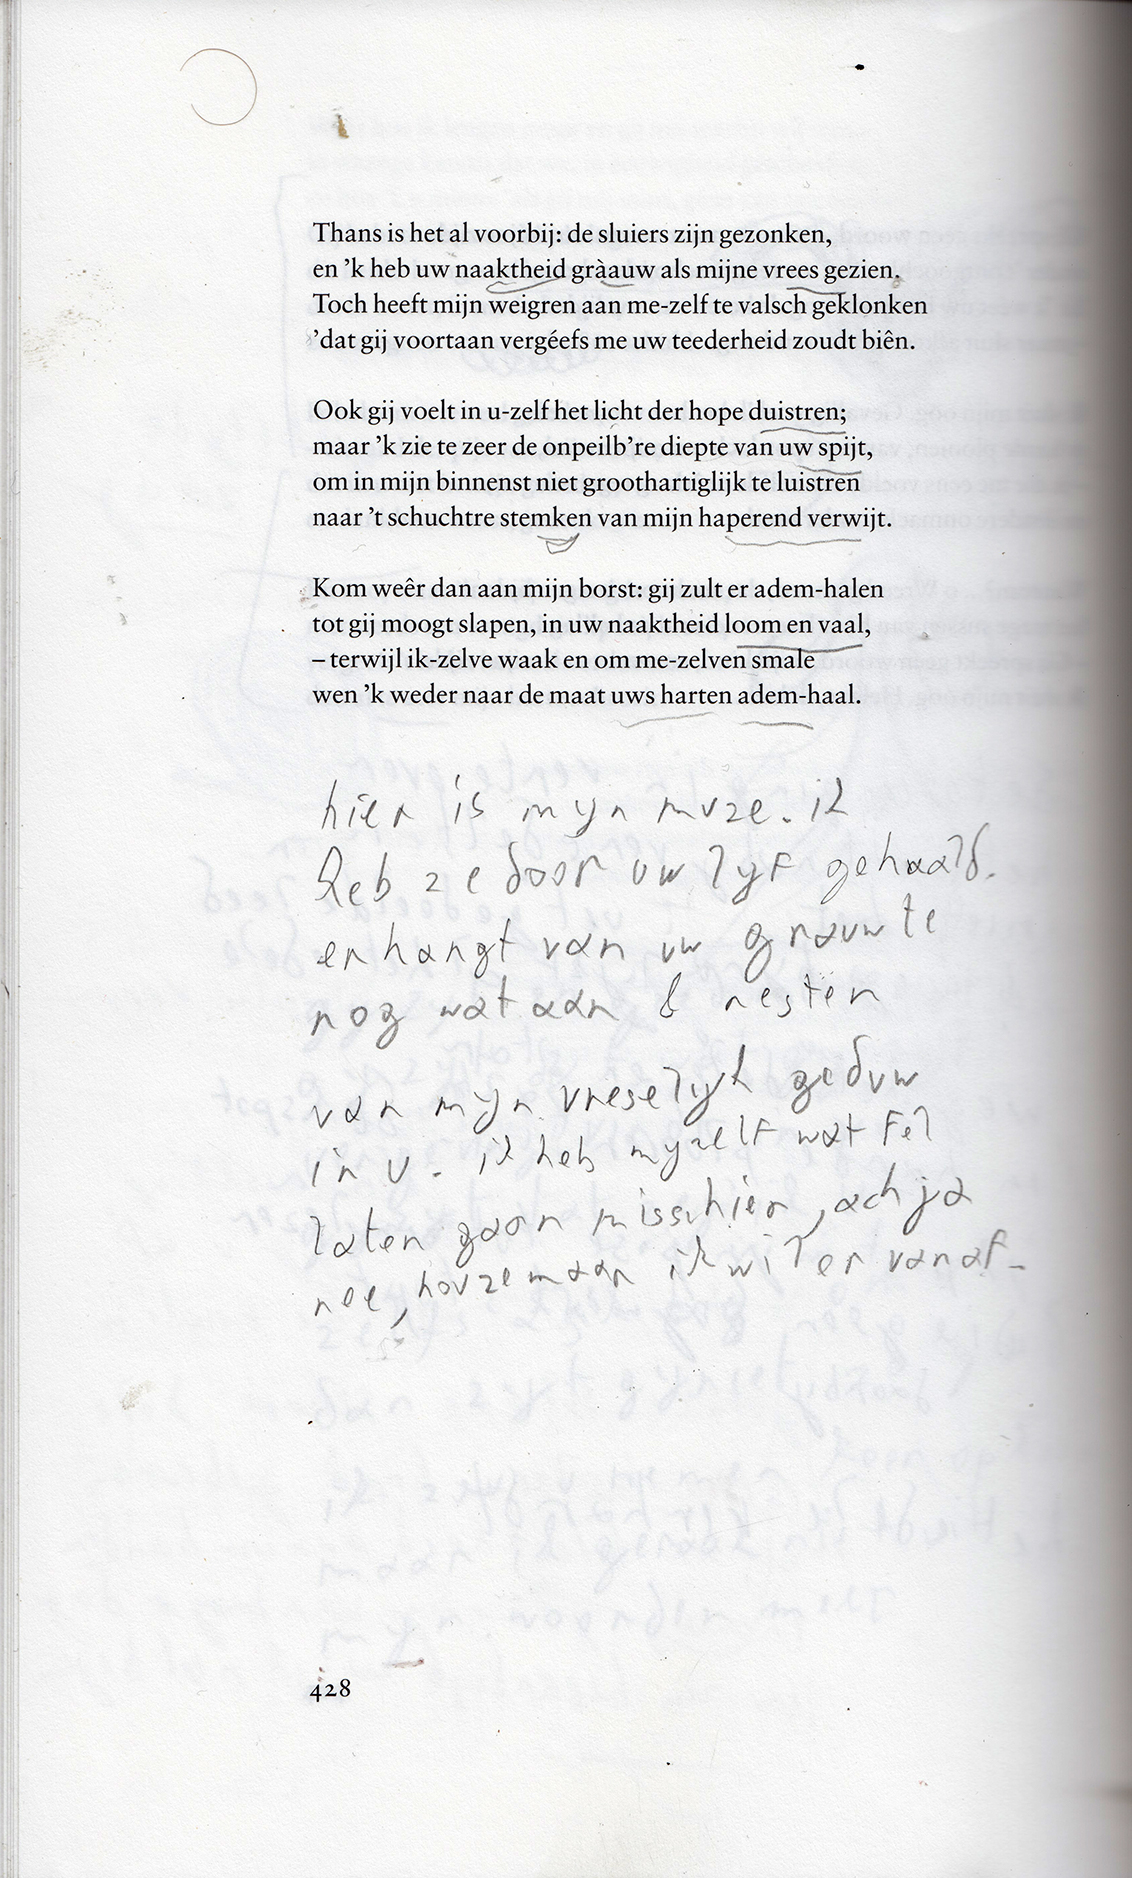 Thans is het al voorbij: de sluiers zijn gezonken,
en ’k heb uw naaktheid gràauw als mijne vrees gezien.
Toch heeft mijn weigren aan me-zelf te valsch geklonken
’dat gij voortaan vergéefs me uw teederheid zoudt biên.
Ook gij voelt in u-zelf het licht der hope duistren;
maar ’k zie te zeer de onpeilb’re diepte van uw spijt,
om in mijn binnenst niet groothartiglijk te luistren
naar ’t schuchtre stemken van mijn haperend verwijt.
Kom weêr dan aan mijn borst: gij zult er adem-halen
tot gij moogt slapen, in uw naaktheid loom en vaal,
– terwijl ik-zelve waak en om me-zelven smale
wen ’k weder naar de maat uws harten adem-haal.
hier is mijn muze. ik
heb ze door uw lijf gehaald.
er hangt van uw grauwte
nog wat aan & resten
van mijn vreselijk geduw
in u. ik heb mijzelf wat fel
laten gaan misschien, ach ja
nee, hou ze maar ik wil er vanaf.
428